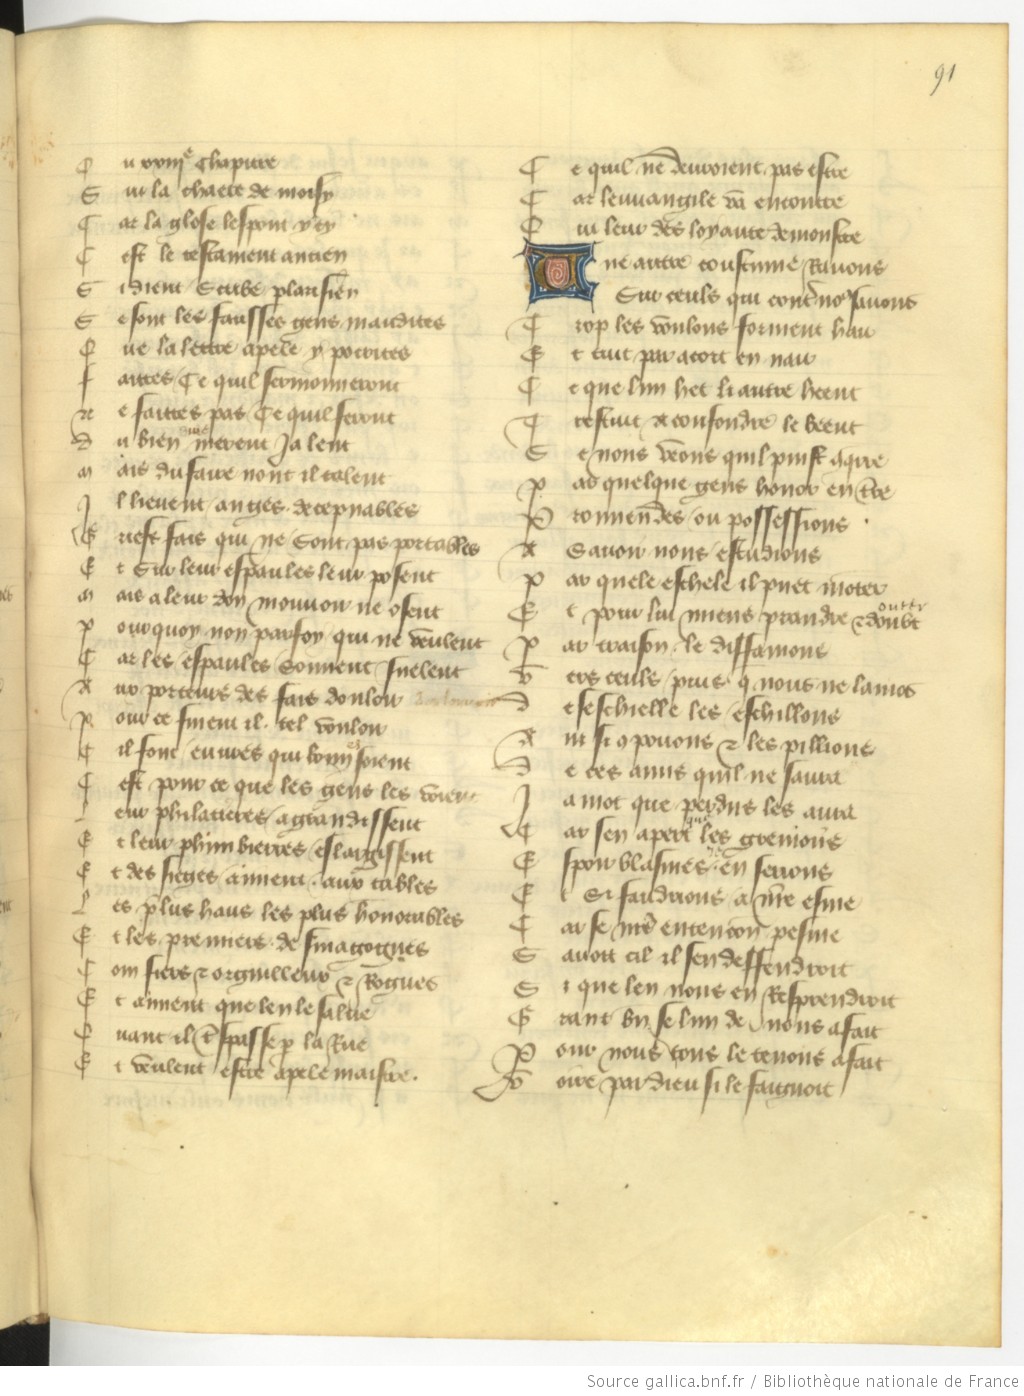 91
O u xxiiie chapitre
S us la chaere de moisy
C ar la glose lespont y cy
C est le testament ancien
S idient scribe pharisien
S e sont les fausses gens maudites
Q ue la lettre apele ypocrites
F aittes ce quil sermonneront
N e faittes pas ce quil feront
D u bien dire nierent ja lent
M ais du faire nont il talent
I l lieuent as gens decepuables
G riefs fais qui ne sont pas portables
E t sur leur espaules leur posent
M ais a leur doy mouuoir ne osent
P ourquoy non par foy qui ne veulent
C ar les espaules souuent suelent
A ux porteurs des fais douloir
P our ce fuient il tel vouloir
C il font euures qui bonnes soient
C est pour ce que les gens les voient
L eur philatieres agrandissent
E t leur phimbierres eslargissent
E t des sieges aiment aux tables
L es plus haus les plus honorables
E t les premiers de sinagogues
C om fiers et orguilleux et rogues
E t aiment que len le salue
Q uant il trespasse par la rue
E t veulent estre apele maistre .
C e quil ne deuuroient pas estre
C ar leuuangile va encontre
Q ui leur desloyaute demonstre
U ne autre coustume rauons
Sur ceuls qui contre nos sauons
T rop les voulons forment hair
E t tuit par acort en nair
C e que lun het li autre heent
T restuit a confondre le beent
S e nous veons quil puist aquerre
P ar quelque gens honor en terre
P rouuendes ou possessions .
A Sauoir nous estudions
P ar quele eschele il puet monter
E t pour lui miens prandre et doubter
P ar traison le diffamons
V ers ceuls puis que nous ne lamons
D e seschielle les eschillons
A in si quo pouons et les pillions
D e ces amis quil ne saura
I a mot que perdus les aura
C ar sen apert les greuions
E spoir blasmes en serions
E t si faudrions a nostre esme
C ar se nostre entencon pesme
S auoit cil il sen deffendroit
S i que len nous en resprendroit
G rant bien se lun de nous a fait
P our nous tous le tenons a fait
V oire par dieu si le faignoit
Source gallica.bnf.fr / Bibliothèque nationale de France